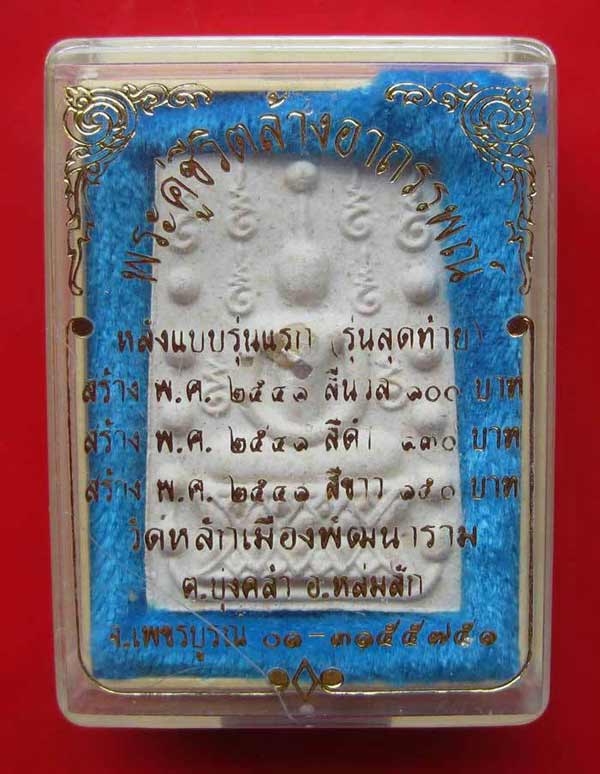 พระคู่ชีวิตล้างอาถรรพณ์
หลังแบบรุ่นแรก (รุ่นสุดท้าย)
สร้าง พ.ศ. ๒๕๔๑ สีนวล ๑๐๐ บาท
สร้าง พ.ศ. ๒๕๔๑ สีดำ ๑๓๐ บาท
สร้าง พ.ศ. ๒๕๔๑ สีขาว ๑๕๐ บาท
วัดหลักเมืองพัฒนาราม
ต.บุ่งคล้า อ.หล่มสัก
จ.เพชรบูรณ์ ๐๑-๓๑๕๕๗๕๑